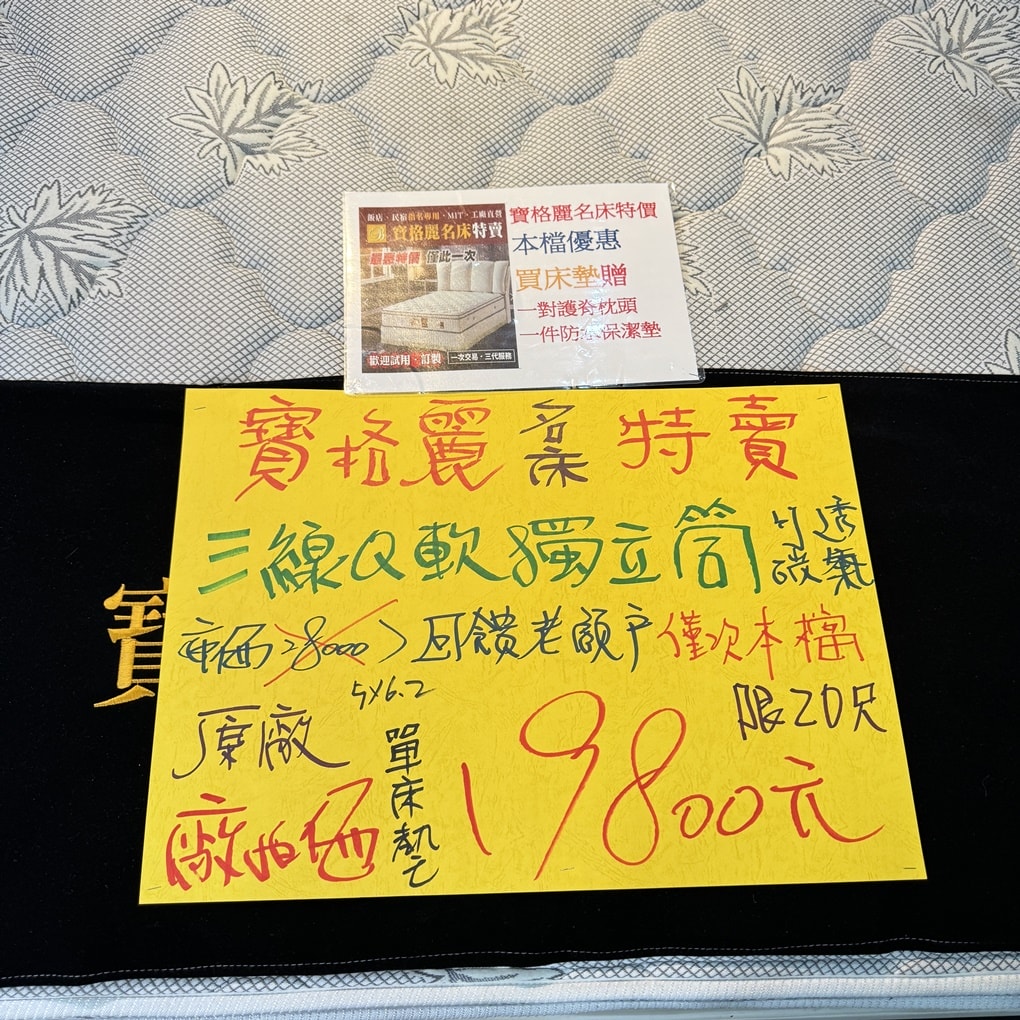 飯店、民宿指名專用、MIT、工廠直營
寶格麗名床特賣
最惠特價 僅此一次
歡迎試用、訂製
一次交易、三代服務
寶格麗名床特價
本檔優惠
買床墊贈
一對護脊枕頭
一件防水保潔墊
寶格麗名床特賣
三線Q軟獨立筒
竹碳
透氣
專櫃28000
回饋老顧戶
僅次本檔
5X6.2
限20尺
原廠
廠拍価
單床墊
19800元
寶